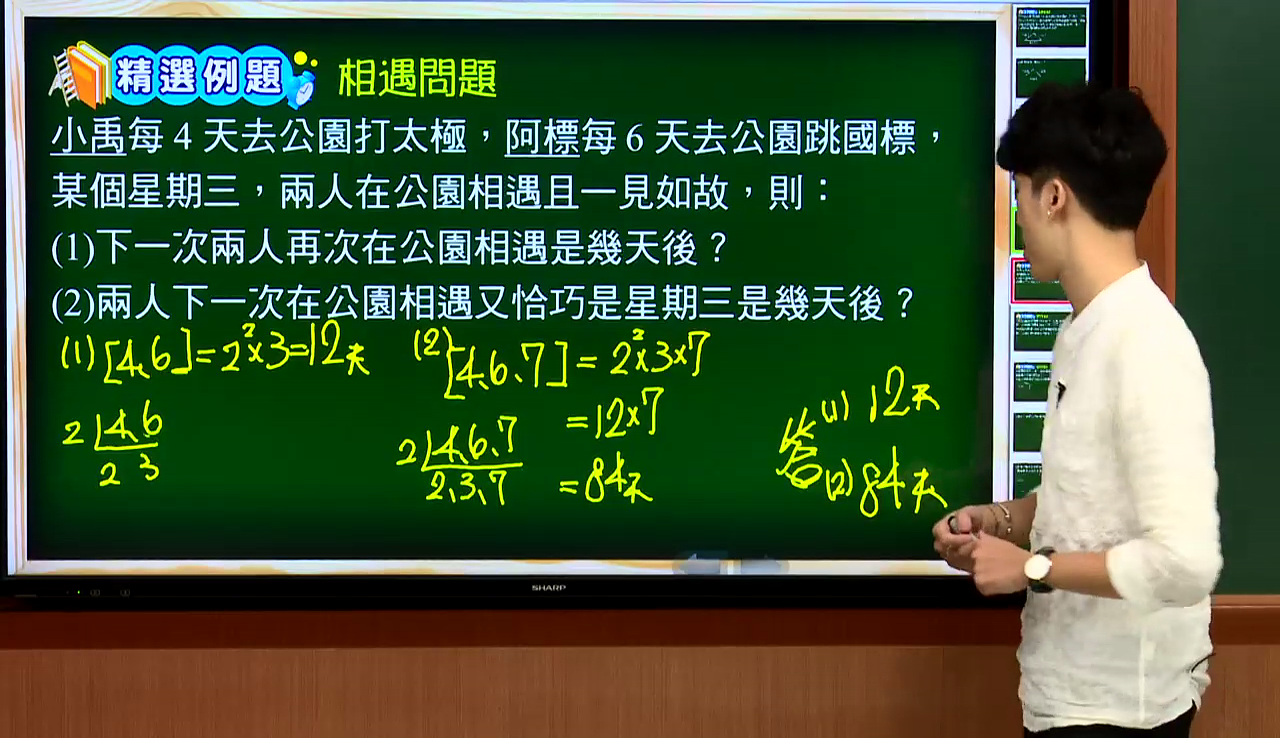 精選例題 相遇問題
小禹每 4 天去公園打太極，阿標每 6 天去公園跳國標，
某個星期三，兩人在公園相遇且一見如故，則：
(1)下一次兩人再次在公園相遇是幾天後？
(2)兩人下一次在公園相遇又恰巧是星期三是幾天後？
(1) [4、6] = 2²×3=12天
2 4、6
2 3
(2) [4、6、7] = 2²×3×7
=12×7
=84天
2 4、6、7
2、3、7
答(1) 12天
(2) 84天
SHARP